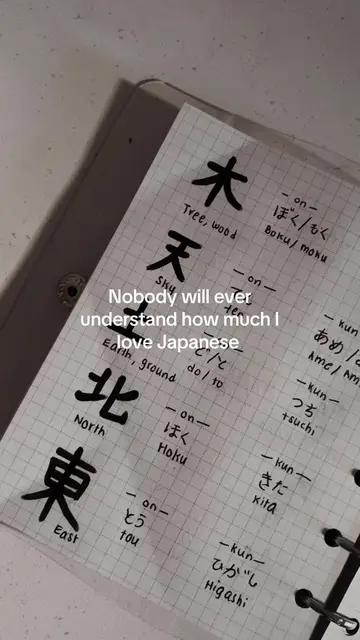 木
Tree, wood
- on -
ぼく/もく
Boku/moku
天
Sky
- on -
てん
ten
Nobody will ever
understand how much I
love Japanese
あめ/
Ame/
土
Earth, ground
ど/と
do/to
- kun -
つち
tsuchi
北
North
- on -
ほく
Hoku
- kun -
きた
Kita
東
East
- on -
とう
tou
- kun -
ひがし
Higashi